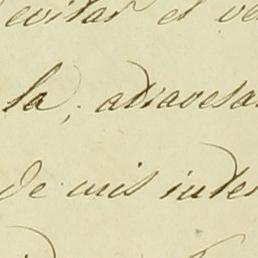 evitar el ve
la, atravesa
de mis inte